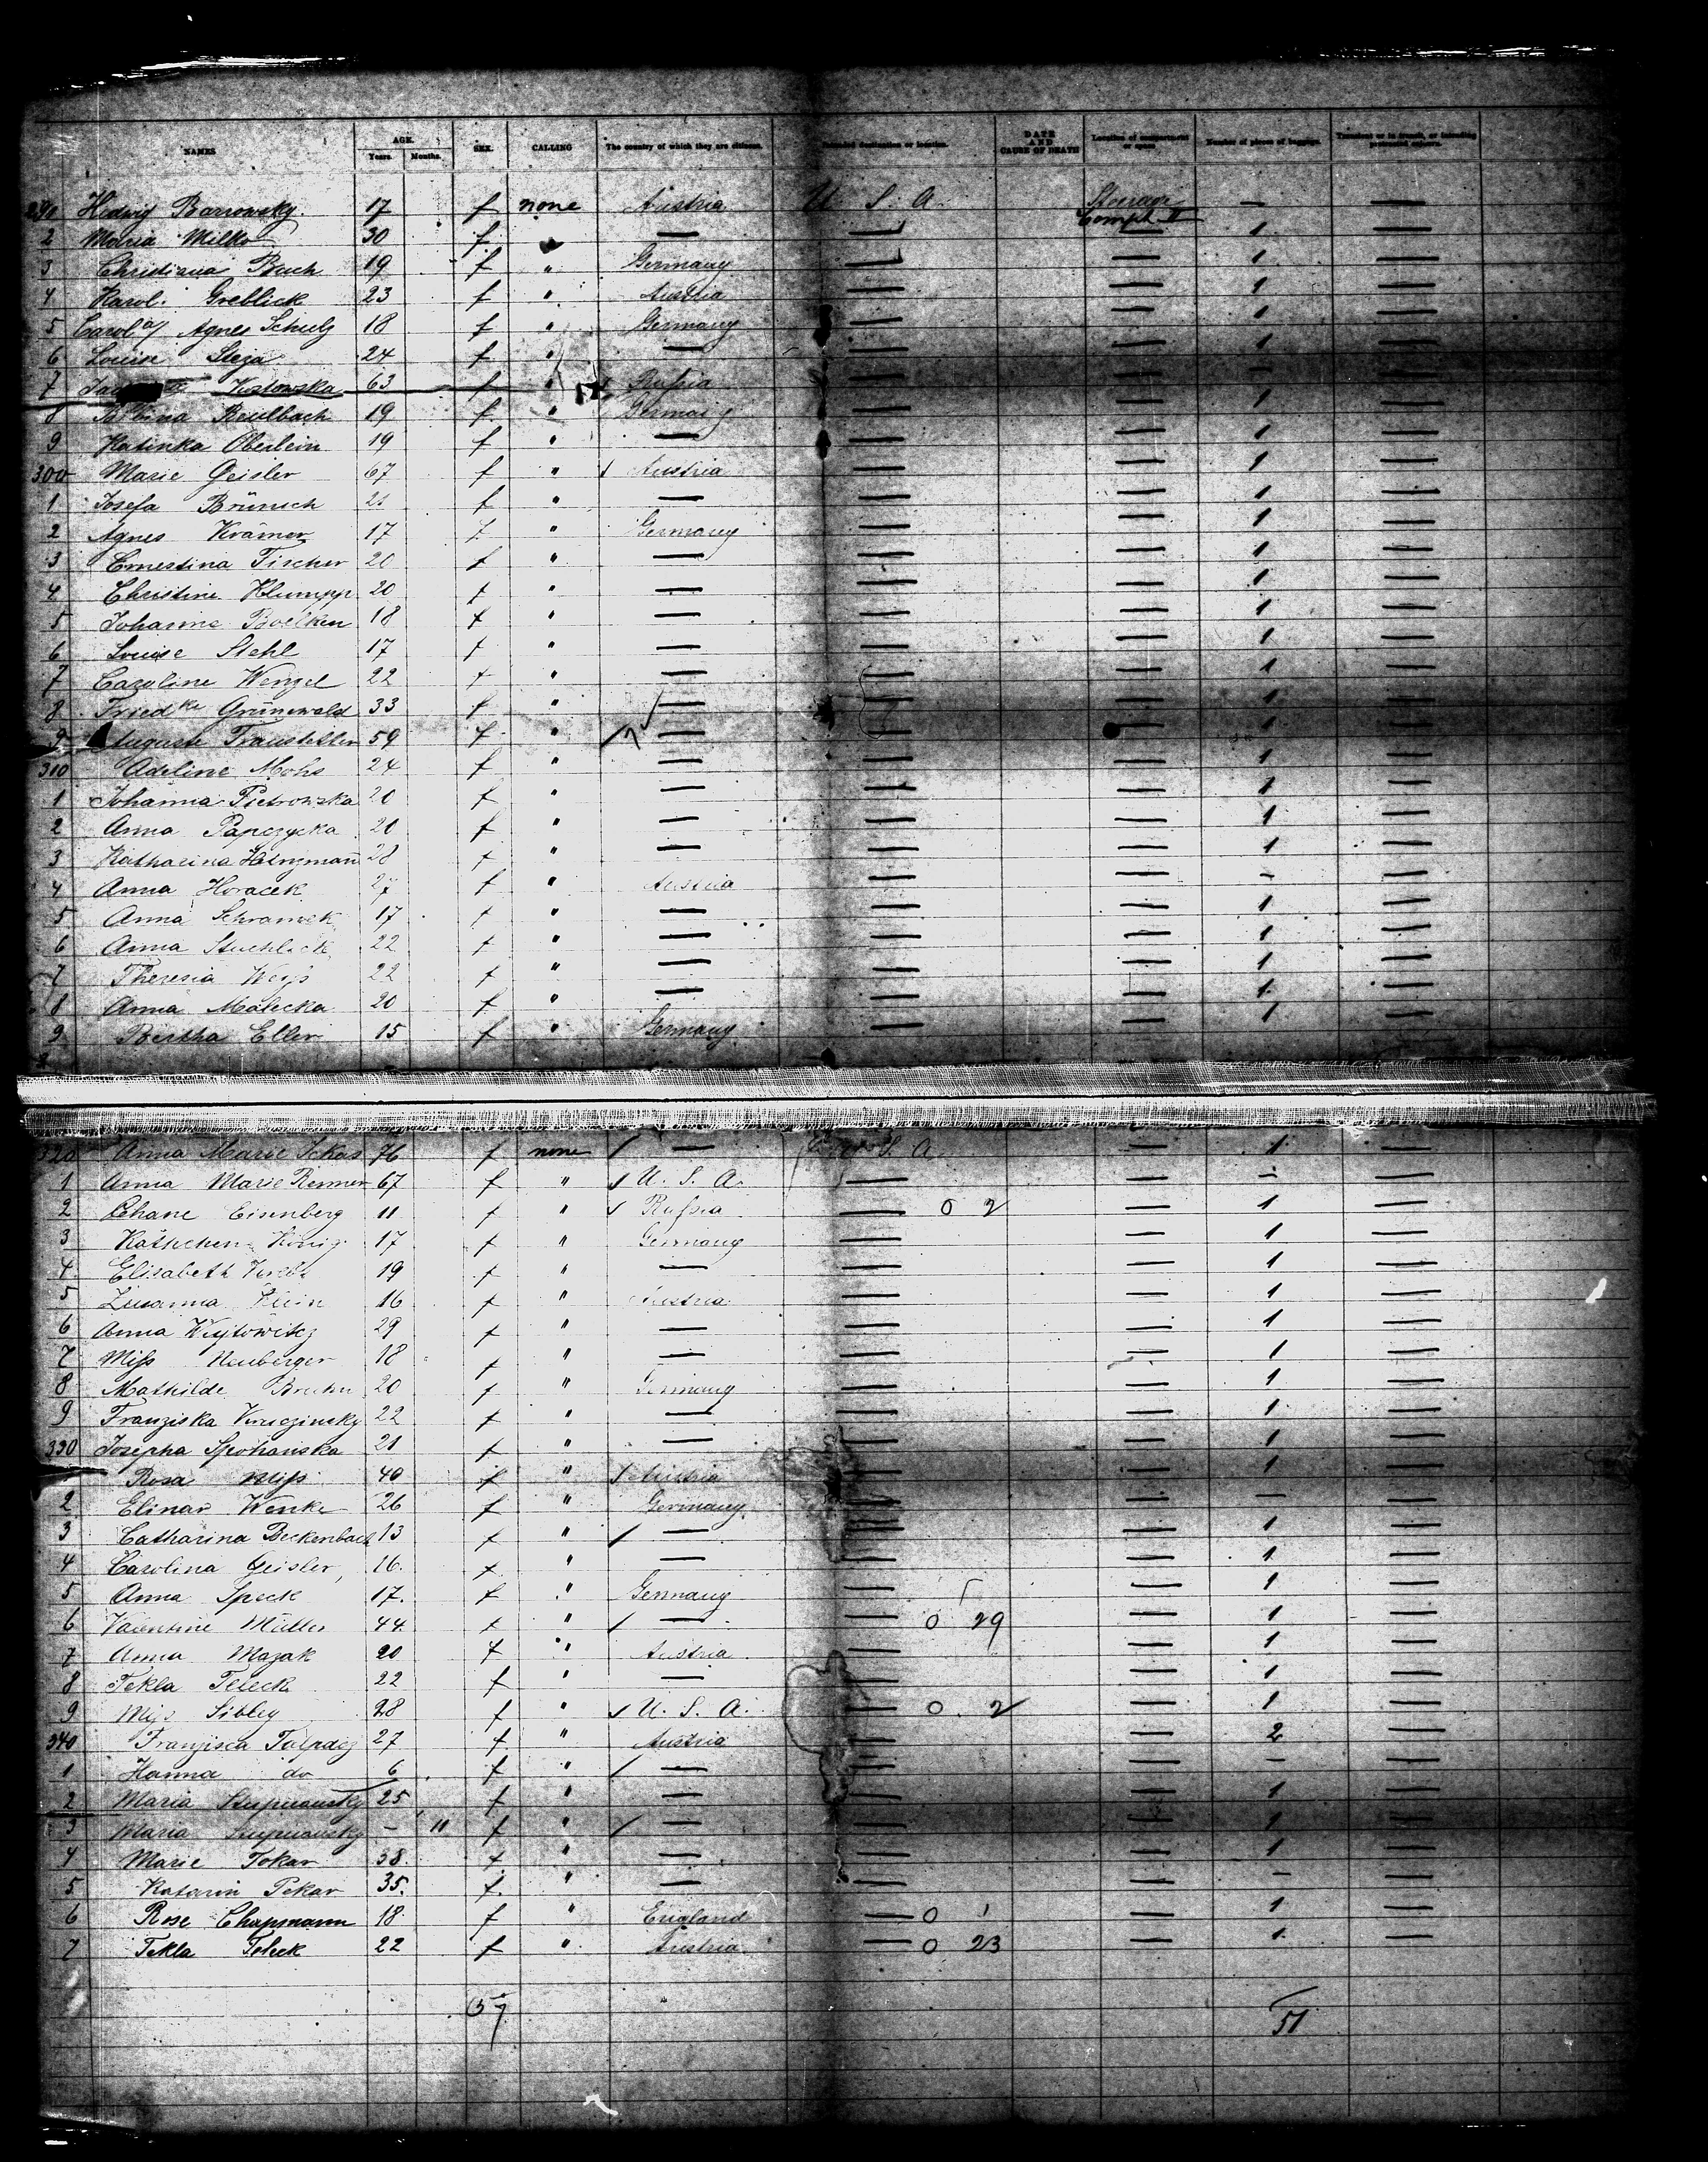 NAMES AGE. Years. Months. SEX. CALLING The country of which they are citizens. Intended destination or location. DATE AND CAUSE OF DEATH Location of compartment or space. Number of pieces of baggage. Transient or in transit, or intending protracted sojourn.
Hedwig Barrowsky. 17 f none Austria U. S. A. Steerage Compt II — —
2 Maria Milko 30 f — — — 1 —
3 Christiana Bach 19 f " Germany — — 1 —
4 Karol. Greblick 23 f " Austria — — 1 —
5 Agnes Schulz 18 f " Germany — — 1 —
6 Louise 24 f " — — — 1 —
7 Kostowska 63 f " Russia — — — —
8 Reulbach 19 f " Germany — — 1 —
9 Katinka Oberlein 19 f " — — — 1 —
300 Marie Geisler 67 f " Austria — — 1 —
1 Josefa Brünsch f " — — — 1 —
2 Agnes Krämer 17 f " Germany — — 1 —
3 Ernestina Fischer 20 f " — — — 1 —
4 Christine Klumpp 20 f " — — — 1 —
5 Johanne Boelken 18 f " — — — 1 —
6 Louise Stehl 17 f " — — — 1 —
7 Caroline Wenzel 22 f " — — — 1 —
8 Friedke Grünewald 33 f " — — — 1 —
9 Auguste 59 f " — — — 1 —
310 Adeline Mohs 24 f " — — — 1 —
1 Johanna Pietrowska 20 f " — — — 1 —
2 Anna Papczycka 20 f " — — — 1 —
3 Katharina 28 f " — — — 1 —
4 Anna Horacek 27 f " Austria — — — —
5 Anna Schramek 17 f " — — — 1 —
6 Anna Stuchlick 22 f " — — — 1 —
7 Theresia Weiss 22 f " — — — 1 —
8 Anna Malecka 20 f " — — — 1 —
9 Bertha Eller 15 f " Germany — — 1 —
320 Anna Marie Ickas 76 f none — S. A. — 1 —
1 Anna Marie Renner 67 f " U. S. A. — — — —
2 Chane Eisenberg 11 f " Russia — 0 2 — 1 —
3 Käthchen König 17 f " Germany — — 1 —
4 Elisabeth 19 f " — — — 1 —
5 Susanna Klein 16 f " Austria — — 1 —
6 Anna Wujtowitcz 29 f " — — — 1 —
7 Miss Neuberger 18 f " — — — 1 —
8 Mathilde Bruhn 20 f " Germany — — 1 —
9 Franziska 22 f " — — — 1 —
330 Josepha 21 f " — — — 1 —
Rosa 40 f " Austria — — 1 —
2 Elinar Wenke 26 f " Germany — — — —
3 Catharina Beckenbach 13 f " — — — 1 —
4 Carolina Geisler, 16. f " — — — 1 —
5 Anna Speck 17. f " Germany — — 1 —
6 Valentine Müller 44 f " — — 0 29 — 1 —
7 Anna Mazak 20 f " Austria — — 1 —
8 Tekla Teleck 22 f " — — — 1 —
9 Miss Sibley 28 f " U. S. A. — 0 2 — 1 —
340 Franzisca 27 f " Austria — — 2 —
1 Hanna do 6 f " — — — — —
2 Maria 25 f " — — — 1 —
3 Maria — 11 f " — — — 1 —
4 Marie Tokar 38. f " — — — 1 —
5 Katarin Pekar 35. f. " — — — — —
6 Rose Chapmann 18 f " England — 0 1 — 1 —
7 Tekla Teleck 22 f " Austria — 0 23 — 1 —
57 51